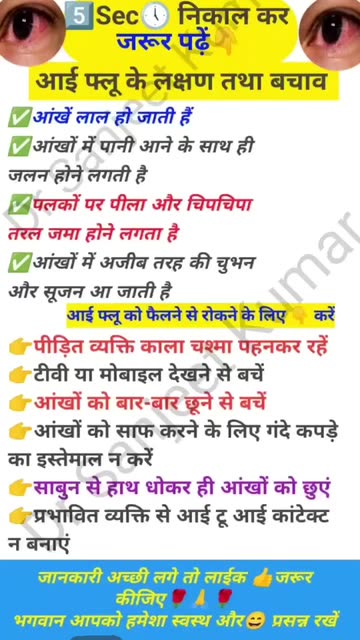 5 Sec निकाल कर
जरूर पढ़ें
आई फ्लू के लक्षण तथा बचाव
✅आंखें लाल हो जाती हैं
✅आंखों में पानी आने के साथ ही
जलन होने लगती है
✅पलकों पर पीला और चिपचिपा
तरल जमा होने लगता है
✅आंखों में अजीब तरह की चुभन
और सूजन आ जाती है
आई फ्लू को फैलने से रोकने के लिए 👇 करें
👉पीड़ित व्यक्ति काला चश्मा पहनकर रहें
👉टीवी या मोबाइल देखने से बचें
👉आंखों को बार-बार छूने से बचें
👉आंखों को साफ करने के लिए गंदे कपड़े
का इस्तेमाल न करें
👉साबुन से हाथ धोकर ही आंखों को छुएं
👉प्रभावित व्यक्ति से आई टू आई कांटेक्ट
न बनाएं
जानकारी अच्छी लगे तो लाईक 👍जरूर
कीजिए🌹🙏🌹
भगवान आपको हमेशा स्वस्थ और😄 प्रसन्न रखें
Dr Sanjeet Kumar
Dr Sanjeet Kumar